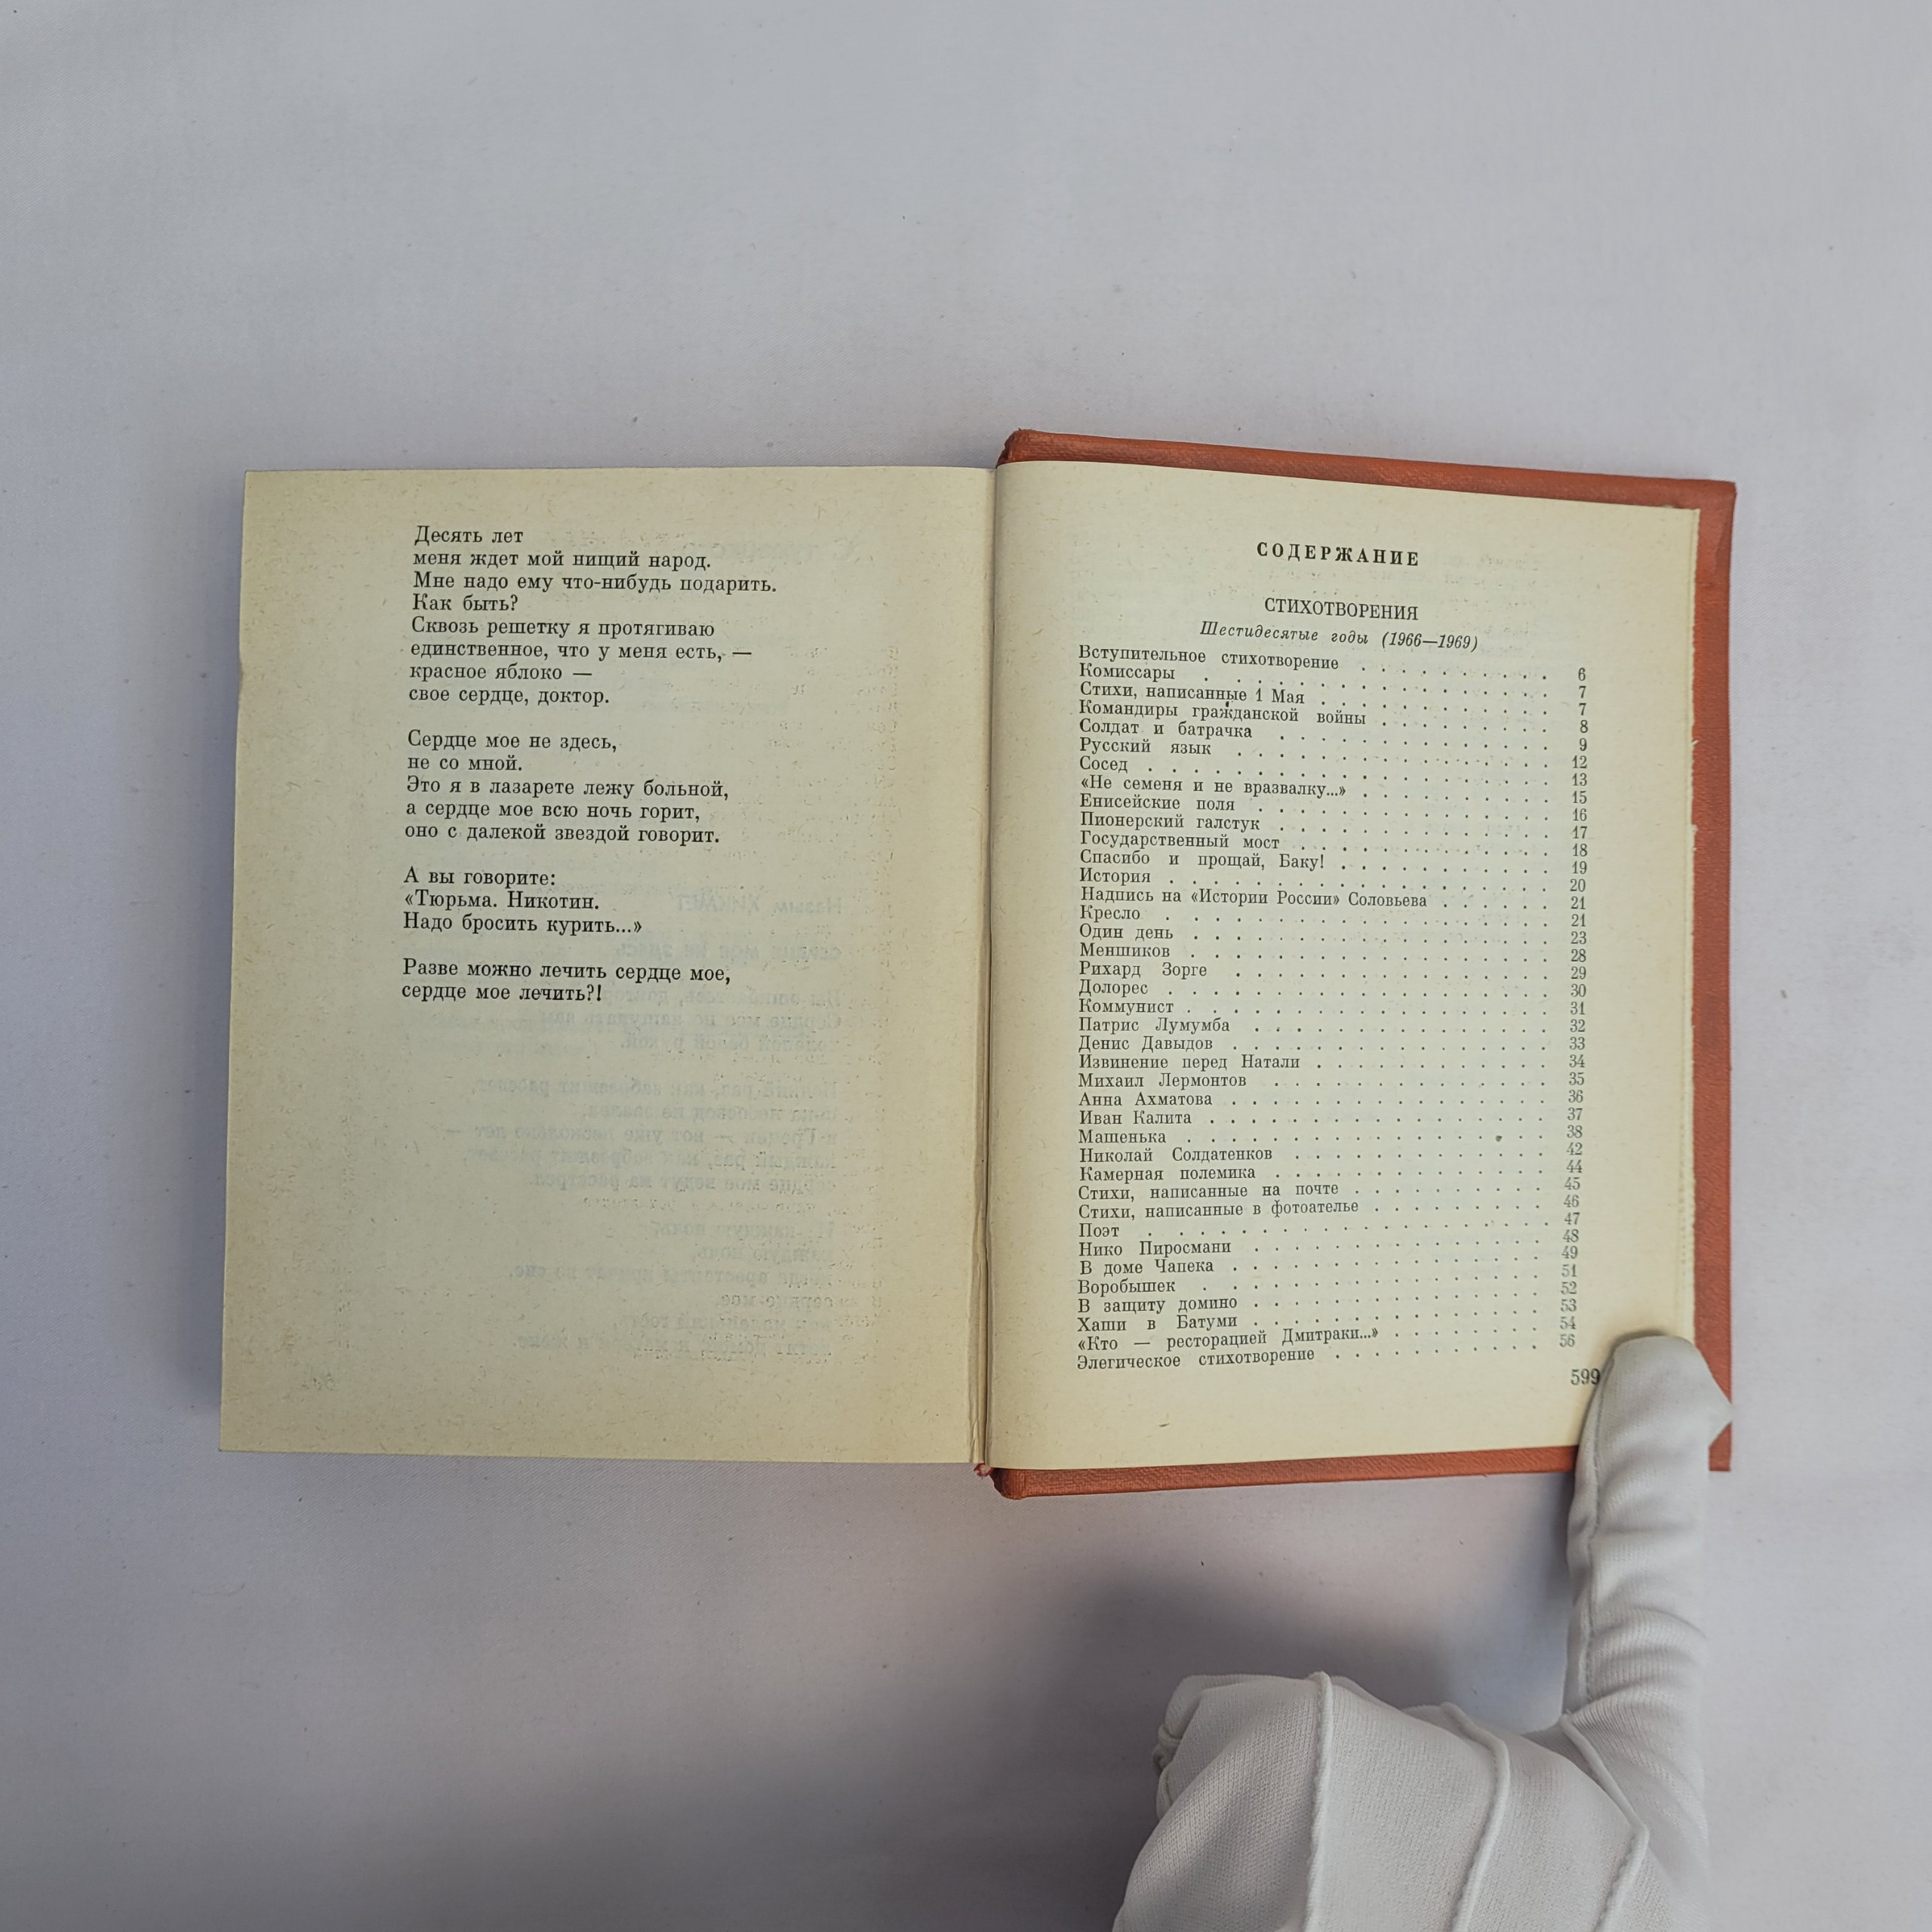 Десять лет
меня ждет мой нищий народ.
Мне надо ему что-нибудь подарить.
Как быть?
Сквозь решетку я протягиваю
единственное, что у меня есть, —
красное яблоко —
свое сердце, доктор.
Сердце мое не здесь,
не со мной.
Это я в лазарете лежу больной,
а сердце мое всю ночь горит,
оно с далекой звездой говорит.
А вы говорите:
«Тюрьма. Никотин.
Надо бросить курить...»
Разве можно лечить сердце мое,
сердце мое лечить?!
СОДЕРЖАНИЕ
СТИХОТВОРЕНИЯ
Шестидесятые годы (1966—1969)
Вступительное стихотворение . . . . . . . . . 6
Комиссары . . . . . . . . . . . . . . . 7
Стихи, написанные 1 Мая . . . . . . . . . . . 7
Командиры гражданской войны . . . . . . . . 8
Солдат и батрачка . . . . . . . . . . . . . 9
Русский язык . . . . . . . . . . . . . . 12
Сосед . . . . . . . . . . . . . . . . . 13
«Не семеня и не вразвалку...» . . . . . . . . . 15
Енисейские поля . . . . . . . . . . . . . 16
Пионерский галстук . . . . . . . . . . . . 17
Государственный мост . . . . . . . . . . . 18
Спасибо и прощай, Баку! . . . . . . . . . . 19
История . . . . . . . . . . . . . . . . 20
Надпись на «Истории России» Соловьева . . . . . 21
Кресло . . . . . . . . . . . . . . . . 21
Один день . . . . . . . . . . . . . . . 23
Меншиков . . . . . . . . . . . . . . . 28
Рихард Зорге . . . . . . . . . . . . . . 29
Долорес . . . . . . . . . . . . . . . . 30
Коммунист . . . . . . . . . . . . . . . 31
Патрис Лумумба . . . . . . . . . . . . . 32
Денис Давыдов . . . . . . . . . . . . . . 33
Извинение перед Натали . . . . . . . . . . 34
Михаил Лермонтов . . . . . . . . . . . . 35
Анна Ахматова . . . . . . . . . . . . . . 36
Иван Калита . . . . . . . . . . . . . . . 37
Машенька . . . . . . . . . . . . . . . . 38
Николай Солдатенков . . . . . . . . . . . 42
Камерная полемика . . . . . . . . . . . . 44
Стихи, написанные на почте . . . . . . . . . 45
Стихи, написанные в фотоателье . . . . . . . . 46
Поэт . . . . . . . . . . . . . . . . . 47
Нико Пиросмани . . . . . . . . . . . . . 48
В доме Чапека . . . . . . . . . . . . . . 49
Воробышек . . . . . . . . . . . . . . . 51
В защиту домино . . . . . . . . . . . . . 52
Хаши в Батуми . . . . . . . . . . . . . 53
«Кто — ресторацией Дмитраки...» . . . . . . . . 54
Элегическое стихотворение . . . . . . . . . . 56
599